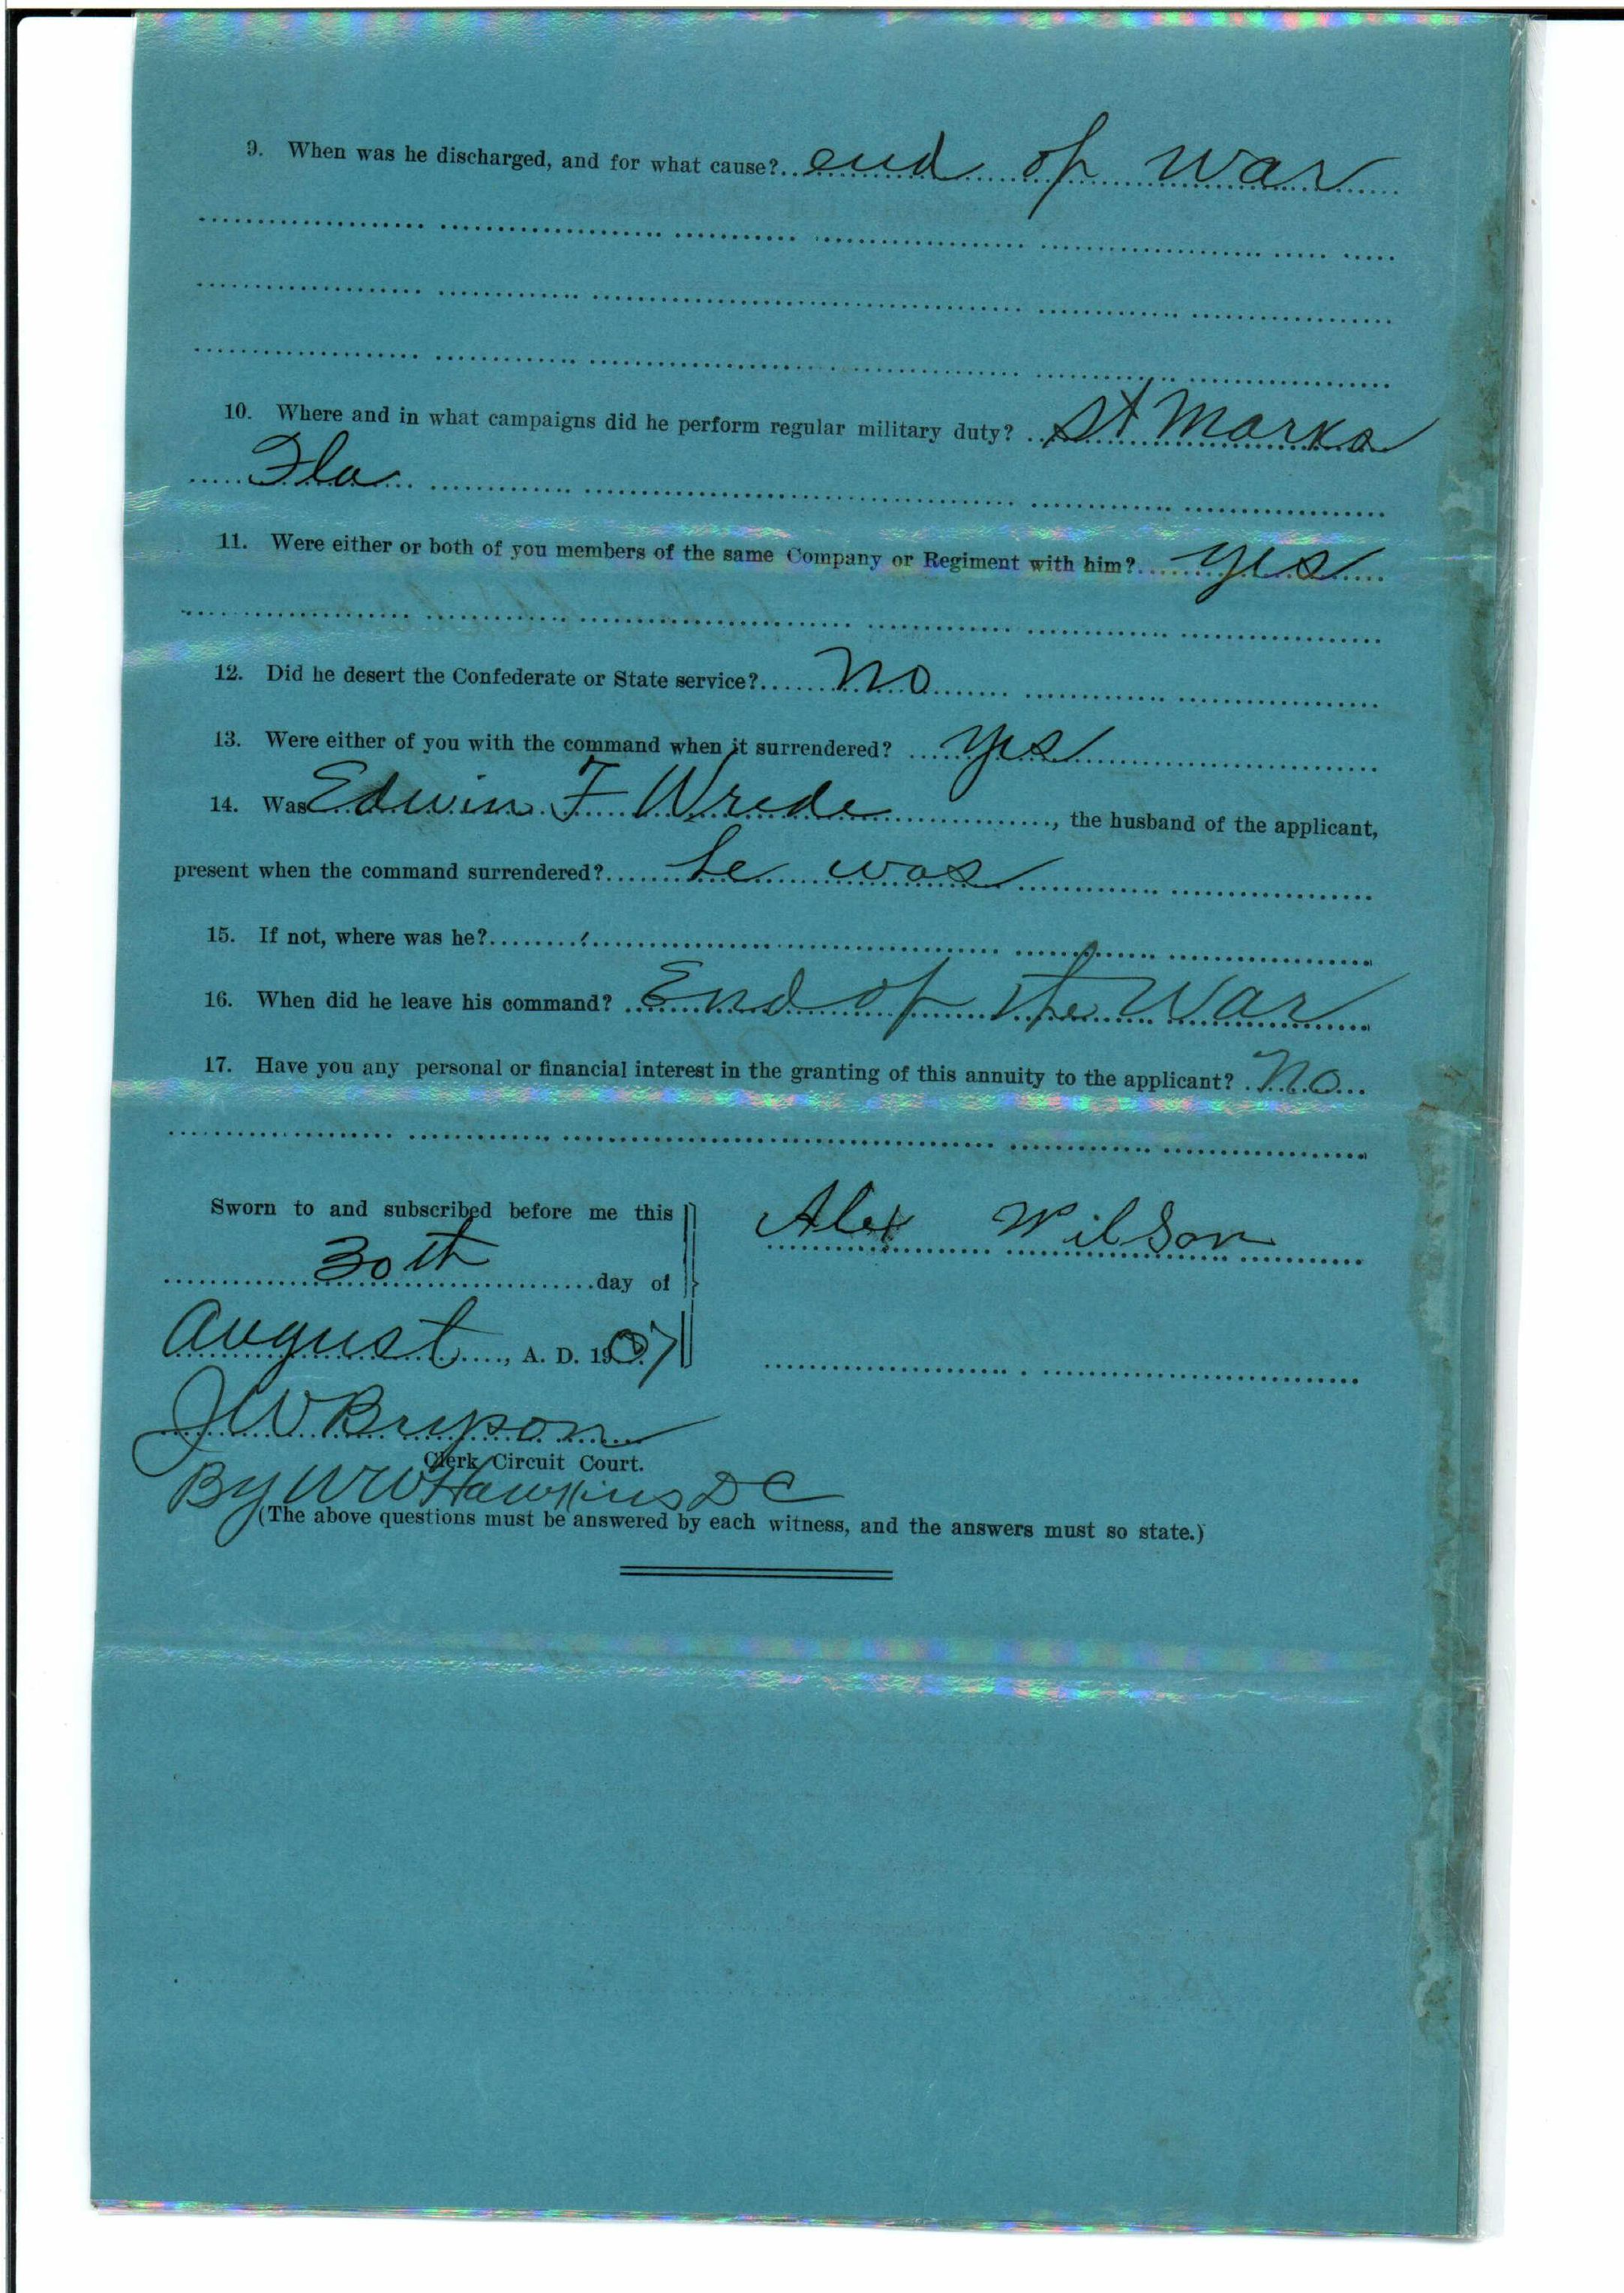 9. When was he discharged, and for what cause? end of war
10. Where and in what campaigns did he perform regular military duty? St Marks
Fla
11. Were either or both of you members of the same Company or Regiment with him? yes
12. Did he desert the Confederate or State service? No
13. Were either of you with the command when it surrendered? yes
14. Was Edwin F Wrede, the husband of the applicant,
present when the command surrendered? he was
15. If not, where was he?
16. When did he leave his command? End of the War
17. Have you any personal or financial interest in the granting of this annuity to the applicant? No
Sworn to and subscribed before me this
Alex Wilson
30th day of
August, A. D. 1907
J W Bryson
Clerk Circuit Court.
By W W Hawkins D C
(The above questions must be answered by each witness, and the answers must so state.)